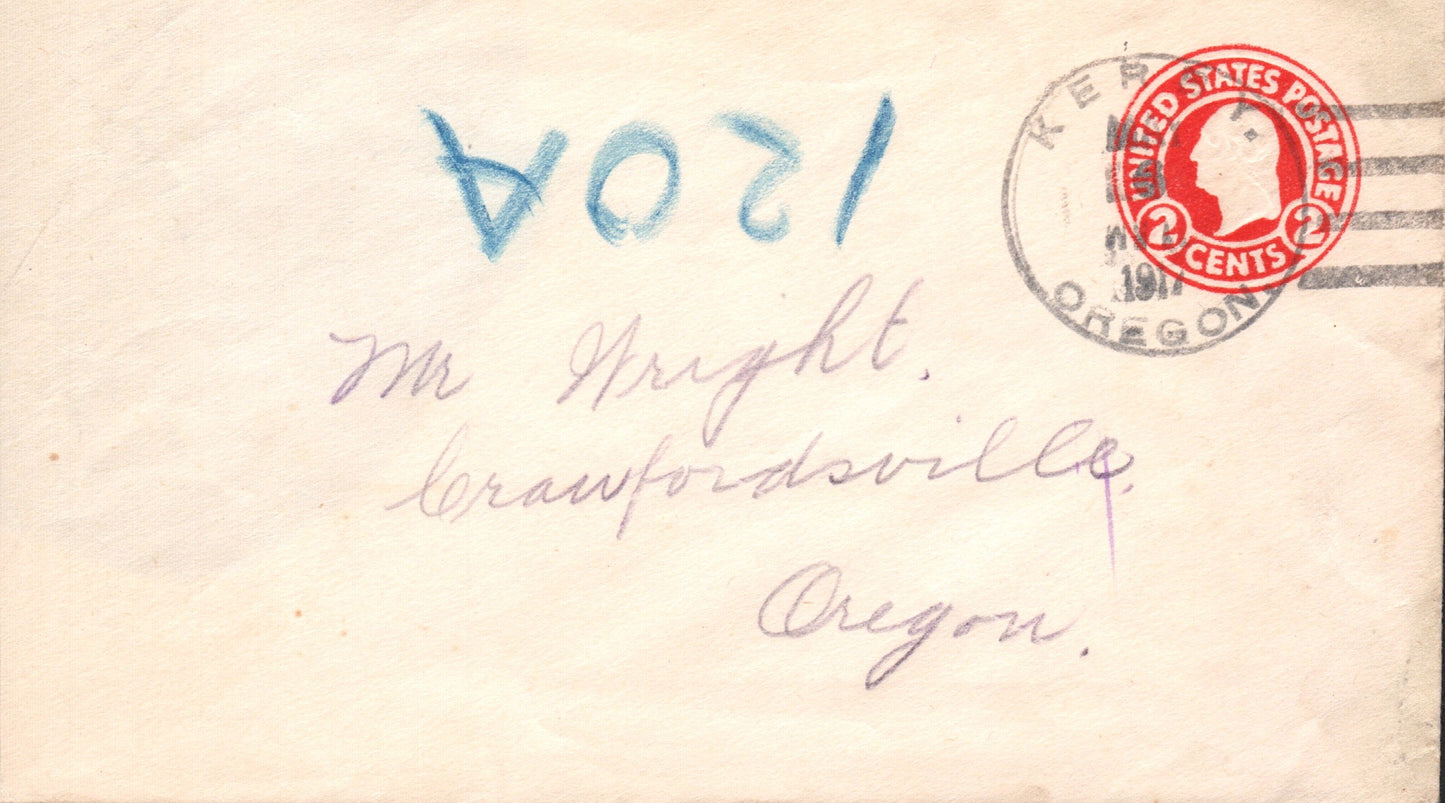 120A
KERBY.
1917
OREGON
UNITED STATES POSTAGE
2 CENTS 2
Mr Wright.
Crawfordsville.
Oregon.